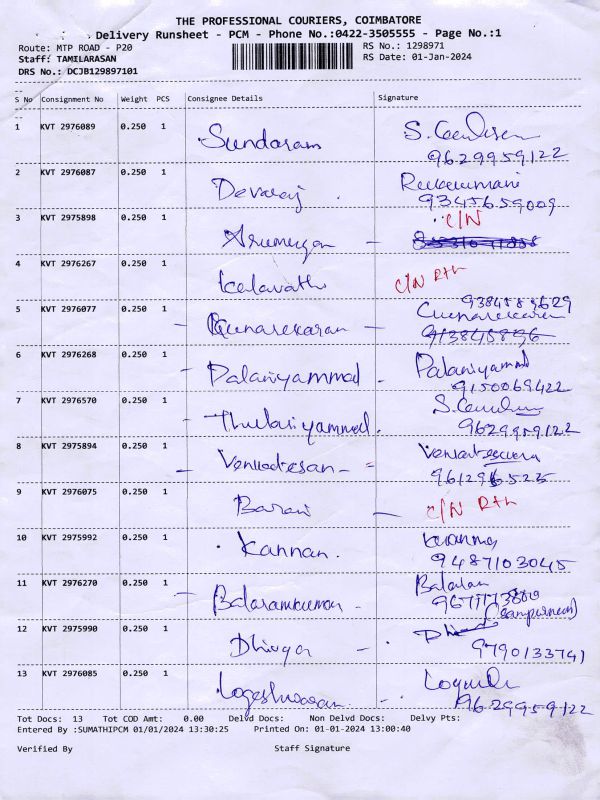 THE PROFESSIONAL COURIERS, COIMBATORE
Delivery Runsheet - PCM - Phone No.:0422-3505555 - Page No.:1
Route: MTP ROAD - P20 RS No.: 1298971
Staff: TAMILARASAN RS Date: 01-Jan-2024
DRS No.: DCJB129897101
S No Consignment No Weight PCS Consignee Details Signature
1 KVT 2976089 0.250 1 Sundaram
9629959122
2 KVT 2976087 0.250 1 Devaraj Rukkumani
9345659009
3 KVT 2975898 0.250 1 Arumugam - C/N
4 KVT 2976267 0.250 1 Kalavathi C/N Rtn
5 KVT 2976077 0.250 1 - Gunasekaran - 9384583629
Gunasekaran
6 KVT 2976268 0.250 1 Palaniyammal - Palaniyammal
9150069422
7 KVT 2976570 0.250 1 Thulasiyammal.
9629959122
8 KVT 2975894 0.250 1 - Venkatesan -
9 KVT 2976075 0.250 1 Barani - C/N Rtn
10 KVT 2975992 0.250 1 Kannan.
9487103045
11 KVT 2976270 0.250 1 - Balaramkumar -
12 KVT 2975990 0.250 1 Dhivya -
9790133741
13 KVT 2976085 0.250 1 Logeshwaran
9629959122
Tot Docs: 13 Tot COD Amt: 0.00 Delvd Docs: Non Delvd Docs: Delvy Pts:
Entered By :SUMATHIPCM 01/01/2024 13:30:25 Printed On: 01-01-2024 13:00:40
Verified By Staff Signature